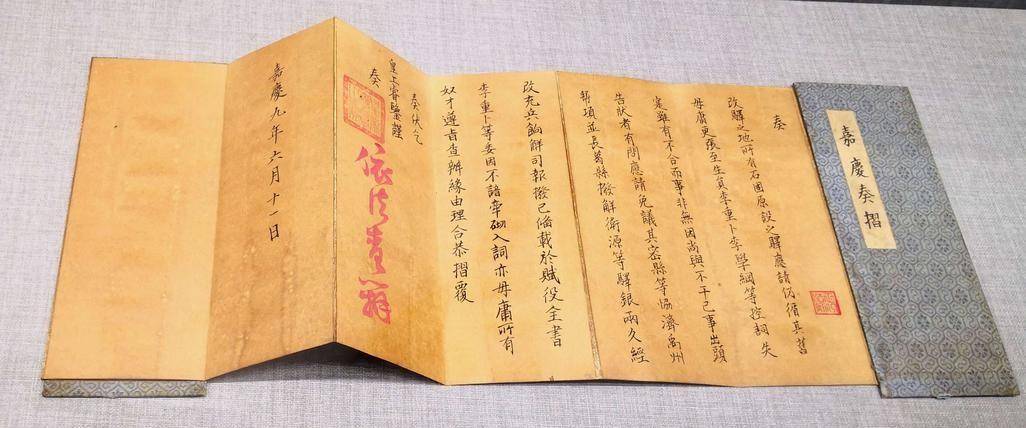 嘉慶奏摺
奏
改驛之地所有石固原設之驛應請仍循其舊
毋庸更張至生員李重卜李學綱等控詞失
實雖有不合而事非無因尚與不干己事出頭
告狀者有間應請免議其密縣等協濟禹州
幫項並長葛縣撥解衛源等驛銀兩久經
改充兵餉解司報撥已備載於賦役全書
李重卜等妄因不諳牽砌入詞亦毋庸所有
奴才遵旨查辦緣由理合恭摺覆
奏伏乞
皇上睿鑒謹
奏
依法查辦
嘉慶九年六月十一日